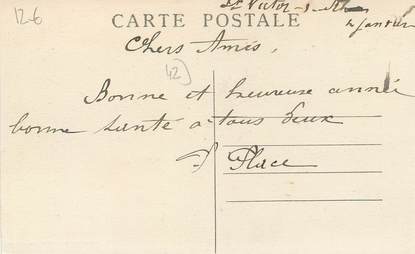 12-6
St Victor-s-Rh
4 janvier
CARTE POSTALE
Chers Amis,
42)
Bonne et heureuse année
bonne santé a tous deux
Place